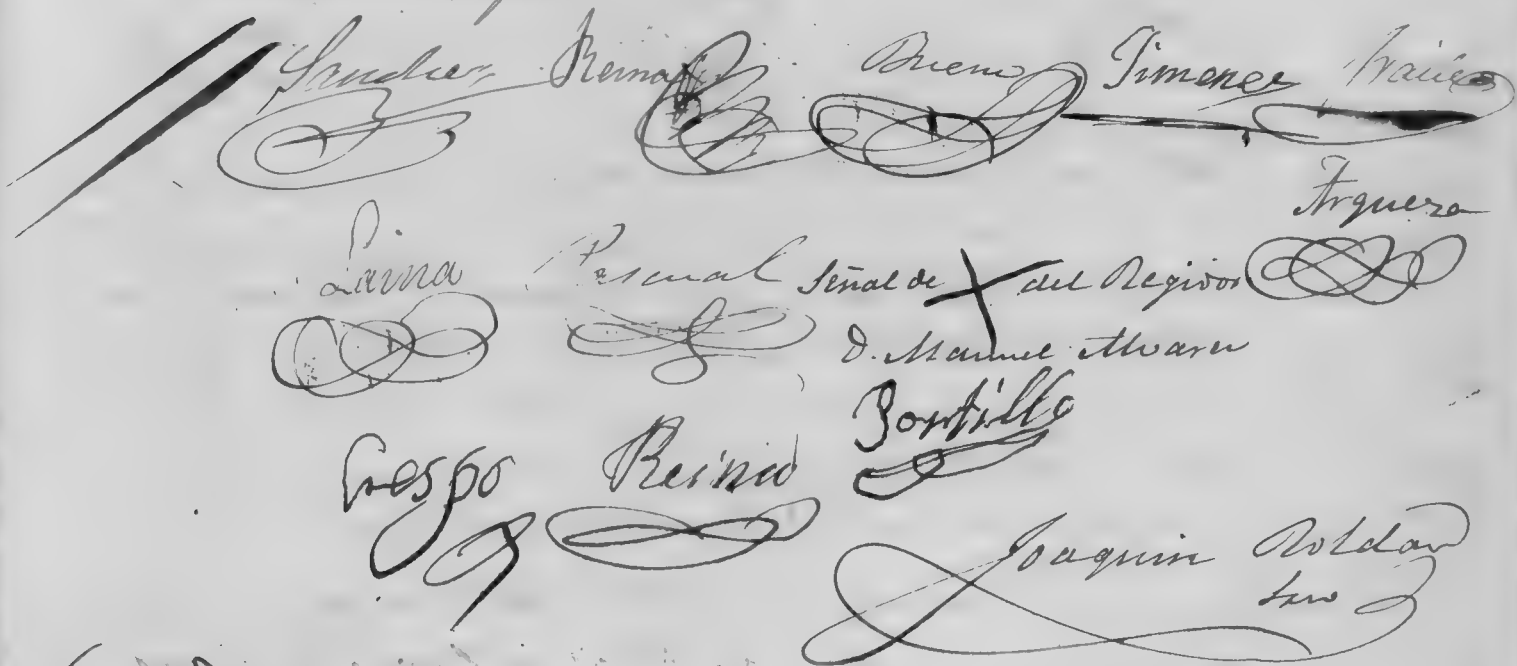 Sanchez Reina Bueno Jimenez
Arqueza
Laina Pascual Señal de del Regidor
D. Manuel Alvarez
Portillo
Crespo Reina
Joaquin Roldan
Srio